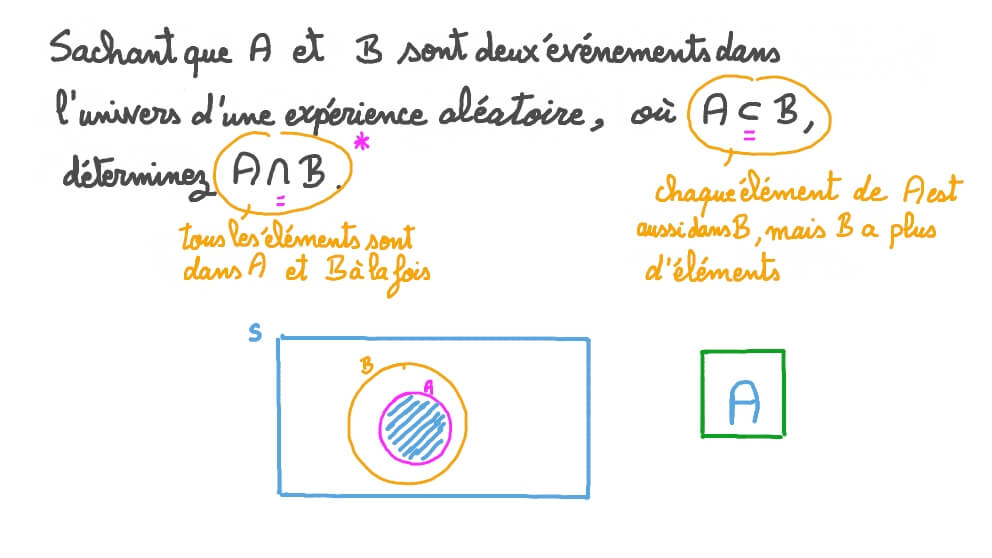 Sachant que A et B sont deux événements dans
l'univers d'une expérience aléatoire, où A ⊂ B,
déterminez A ∩ B.
*
=
=
chaque élément de A est
aussi dans B, mais B a plus
d'éléments
tous les éléments sont
dans A et B à la fois
S
B
A
A